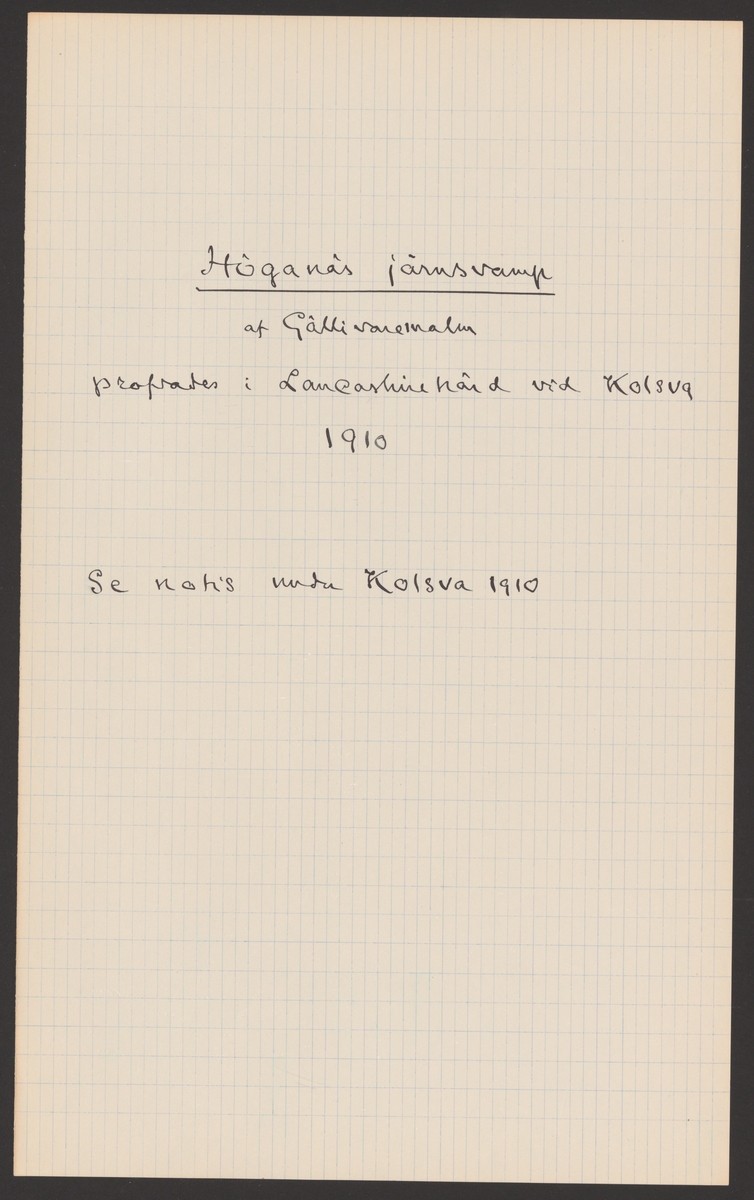 Höganäs järnsvamp
af Gällivaremalm
profvades i Lancashirehärd vid Kolsva
1910
Se notis under Kolsva 1910